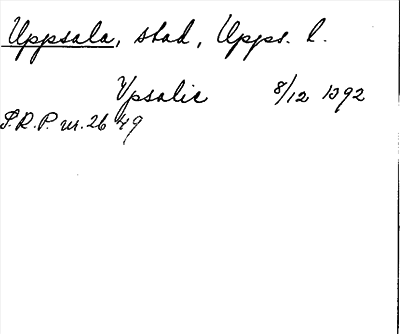 Uppsala, stad, Upps. l.
Ypsalie 8/12 1392
S.R.P. nr. 2649